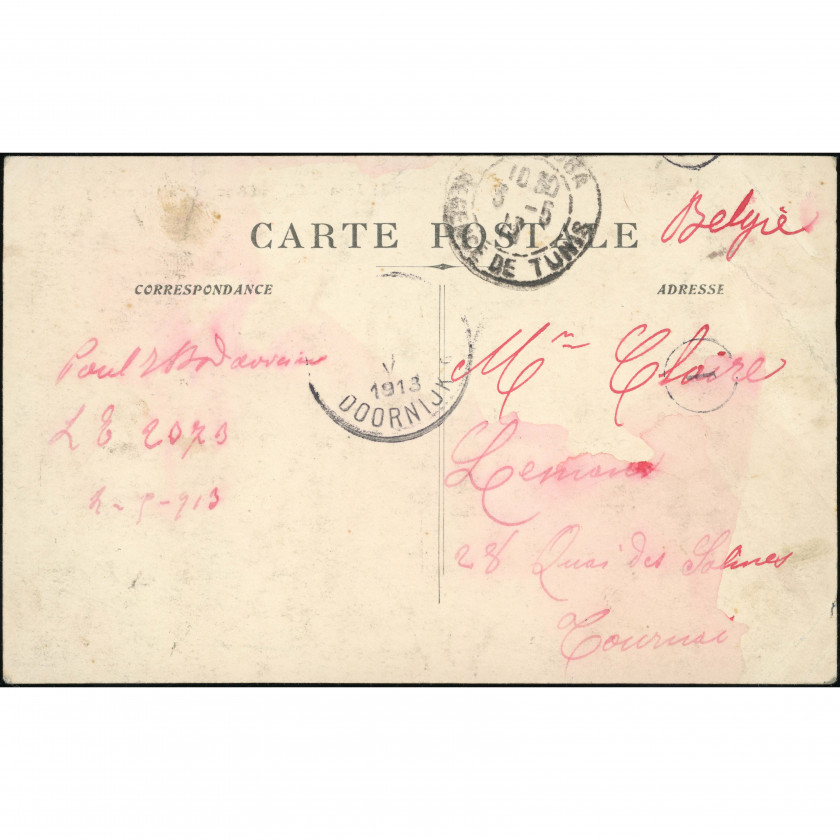 CARTE POSTALE
10 30
3 - 5
DE TUNIS
Belgie
CORRESPONDANCE
ADRESSE
Paul
L E 2073
2-5-913
V
1913
DOORNIJK
Mme Claire
28 Quai des Salines
Tournai